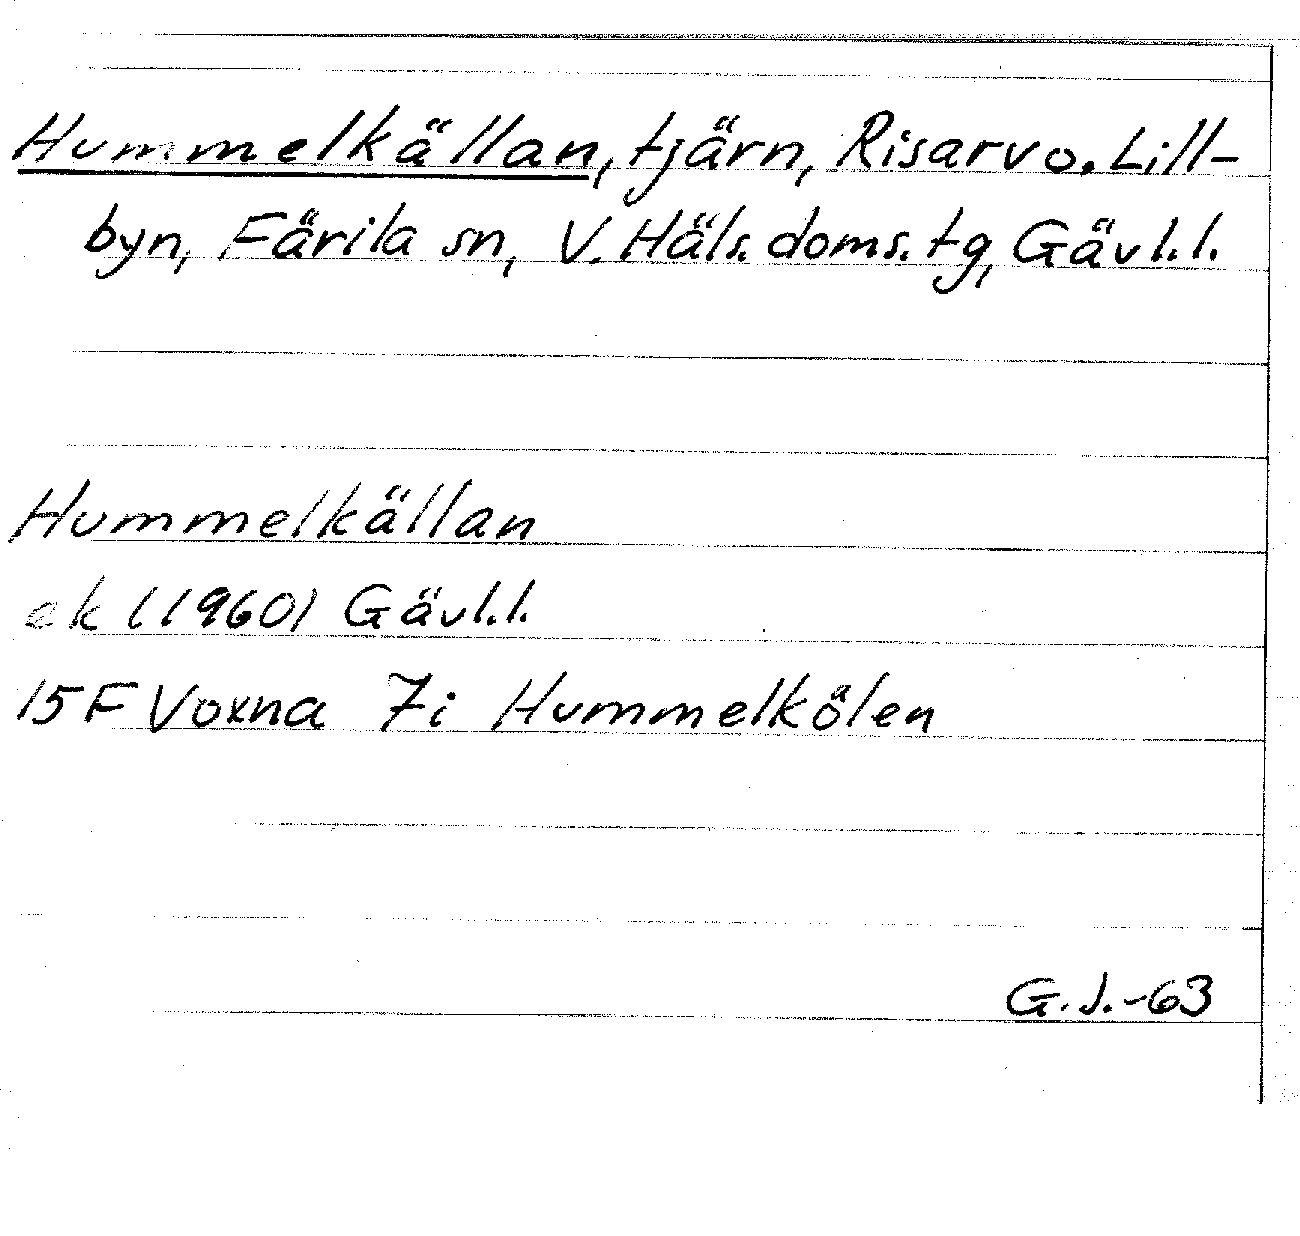 Hummelkällan, tjärn, Risarv o. Lill-
byn, Färila sn, V. Häls. doms. tg, Gävl. l.
Hummelkällan
ek (1960) Gävl. l.
15F Voxna 7i Hummelkölen
G.J.-63